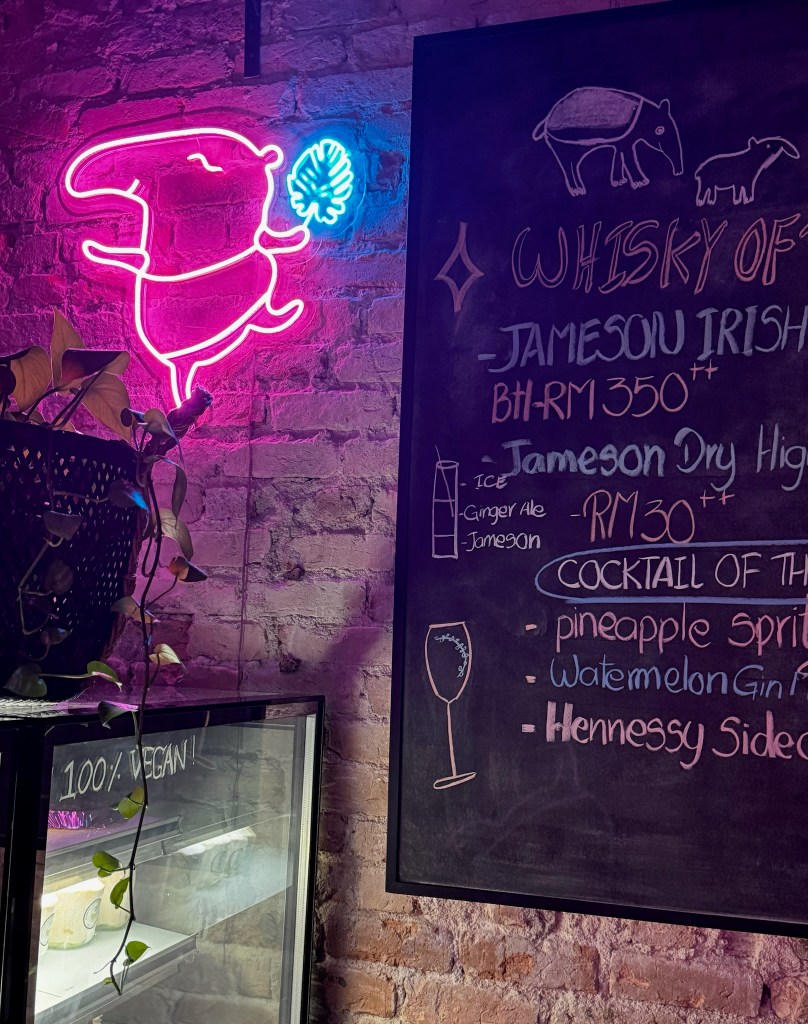 WHISKY OF
-JAMESON IRISH
Btl-RM 350++
- Jameson Dry Hig
- ICE
- Ginger Ale
- Jameson
- RM 30++
COCKTAIL OF TH
- pineapple sprit
- Watermelon Gin
- Hennessy Sidec
100% VEGAN!